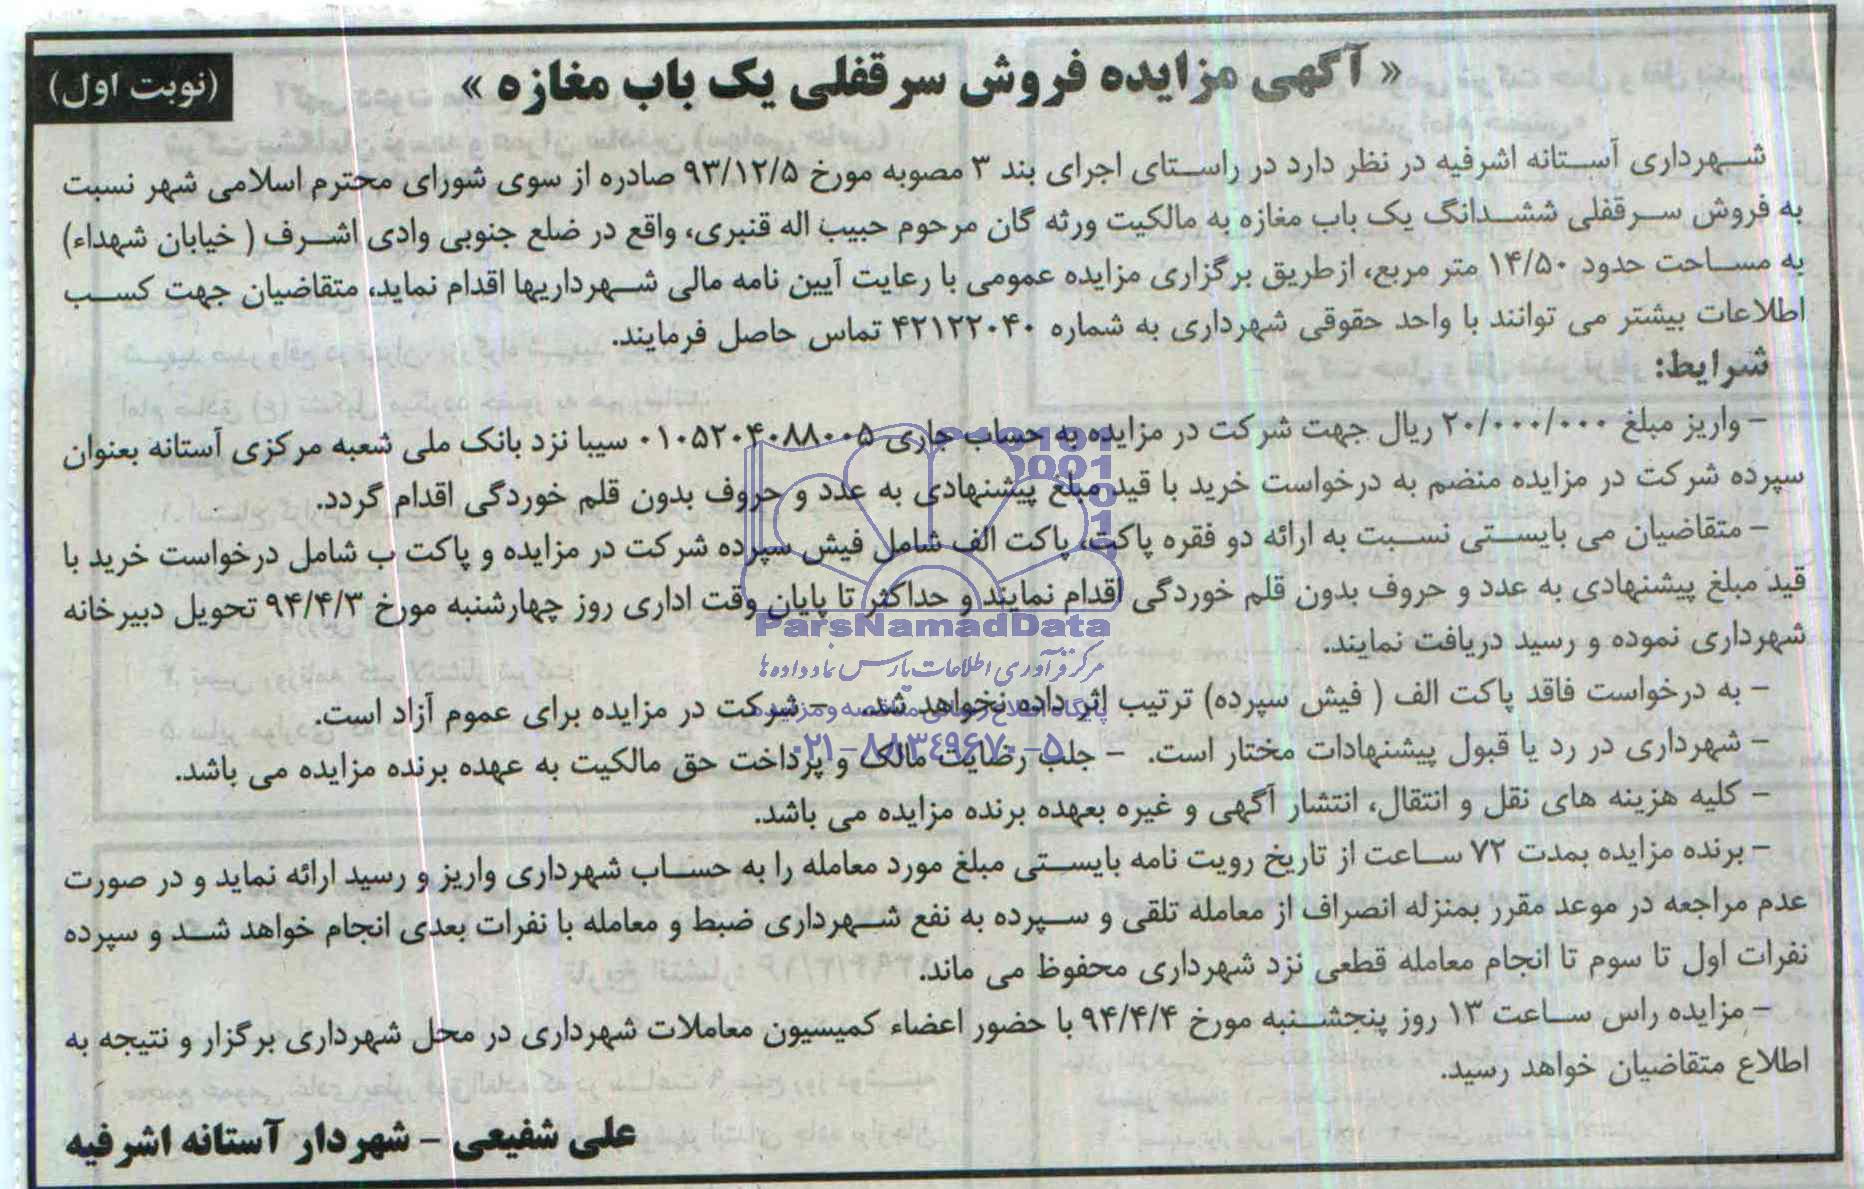 « آگهی مزایده فروش سرقفلی یک باب مغازه »
(نوبت اول)
شهرداری آستانه اشرفیه در نظر دارد در راستای اجرای بند ۳ مصوبه مورخ ۹۳/۱۲/۵ صادره از سوی شورای محترم اسلامی شهر نسبت
به فروش سرقفلی ششدانگ یک باب مغازه به مالکیت ورثه گان مرحوم حبیب اله قنبری، واقع در ضلع جنوبی وادی اشرف ( خیابان شهداء)
به مساحت حدود ۱۴/۵۰ متر مربع، ازطریق برگزاری مزایده عمومی با رعایت آیین نامه مالی شهرداریها اقدام نماید، متقاضیان جهت کسب
اطلاعات بیشتر می توانند با واحد حقوقی شهرداری به شماره ۴۲۱۲۲۰۴۰ تماس حاصل فرمایند.
شرایط:
- واریز مبلغ ۲۰/۰۰۰/۰۰۰ ریال جهت شرکت در مزایده به حساب جاری ۰۱۰۵۲۰۴۰۸۸۰۰۵ سیبا نزد بانک ملی شعبه مرکزی آستانه بعنوان
سپرده شرکت در مزایده منضم به درخواست خرید با قید مبلغ پیشنهادی به عدد و حروف بدون قلم خوردگی اقدام گردد.
- متقاضیان می بایستی نسبت به ارائه دو فقره پاکت، پاکت الف شامل فیش سپرده شرکت در مزایده و پاکت ب شامل درخواست خرید با
قید مبلغ پیشنهادی به عدد و حروف بدون قلم خوردگی اقدام نمایند و حداکثر تا پایان وقت اداری روز چهارشنبه مورخ ۹۴/۴/۳ تحویل دبیرخانه
شهرداری نموده و رسید دریافت نمایند.
- به درخواست فاقد پاکت الف ( فیش سپرده) ترتیب اثر داده نخواهد شد. - شرکت در مزایده برای عموم آزاد است.
- شهرداری در رد یا قبول پیشنهادات مختار است. - جلب رضایت مالک و پرداخت حق مالکیت به عهده برنده مزایده می باشد.
- کلیه هزینه های نقل و انتقال، انتشار آگهی و غیره بعهده برنده مزایده می باشد.
- برنده مزایده بمدت ۷۲ ساعت از تاریخ رویت نامه بایستی مبلغ مورد معامله را به حساب شهرداری واریز و رسید ارائه نماید و در صورت
عدم مراجعه در موعد مقرر بمنزله انصراف از معامله تلقی و سپرده به نفع شهرداری ضبط و معامله با نفرات بعدی انجام خواهد شد و سپرده
نفرات اول تا سوم تا انجام معامله قطعی نزد شهرداری محفوظ می ماند.
- مزایده راس ساعت ۱۳ روز پنجشنبه مورخ ۹۴/۴/۴ با حضور اعضاء کمیسیون معاملات شهرداری در محل شهرداری برگزار و نتیجه به
اطلاع متقاضیان خواهد رسید.
علی شفیعی - شهردار آستانه اشرفیه
ParsNamadData
مرکز فرآوری اطلاعات پارس نماد داده ها
پایگاه اطلاع رسانی مناقصه و مزایده
۰۲۱-۸۸۳۴۹۶۷۰-۵